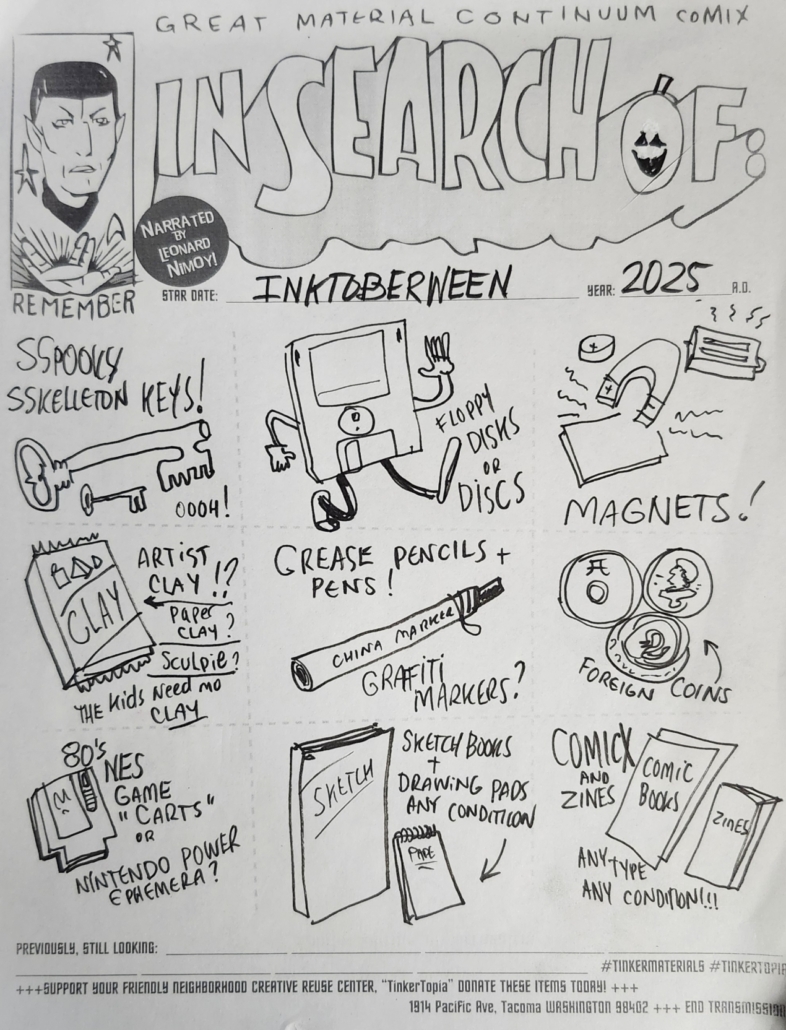 GREAT MATERIAL CONTINUUM COMIX
IN SEARCH OF:
NARRATED
BY
LEONARD
NIMOY!
REMEMBER
STAR DATE: INKTOBERWEEN YEAR: 2025 A.D.
SSPOOKY
SSKELLETON KEYS!
OOOH!
FLOPPY
DISKS
OR
DISCS
MAGNETS!
CLAY
ARTIST
CLAY!?
PAPER
CLAY?
Sculpie?
THE KIDS NEED MO
CLAY
GREASE PENCILS +
PENS!
CHINA MARKER
GRAFITI
MARKERS?
FOREIGN COINS
80's
NES
GAME
"CARTS"
OR
NINTENDO POWER
EPHEMERA?
SKETCH
SKETCH BOOKS
+
DRAWING PADS
ANY CONDITION
COMICX
AND
ZINES
COMIC
BOOKS
ZINES
ANY TYPE
ANY CONDITION!!!
PREVIOUSLY, STILL LOOKING:
#TINKERMATERIALS #TINKERTOPIA
+++SUPPORT YOUR FRIENDLY NEIGHBORHOOD CREATIVE REUSE CENTER, "TinkerTopia" DONATE THESE ITEMS TODAY! +++
1914 Pacific Ave, Tacoma WASHINGTON 98402 +++ END TRANSMISSION